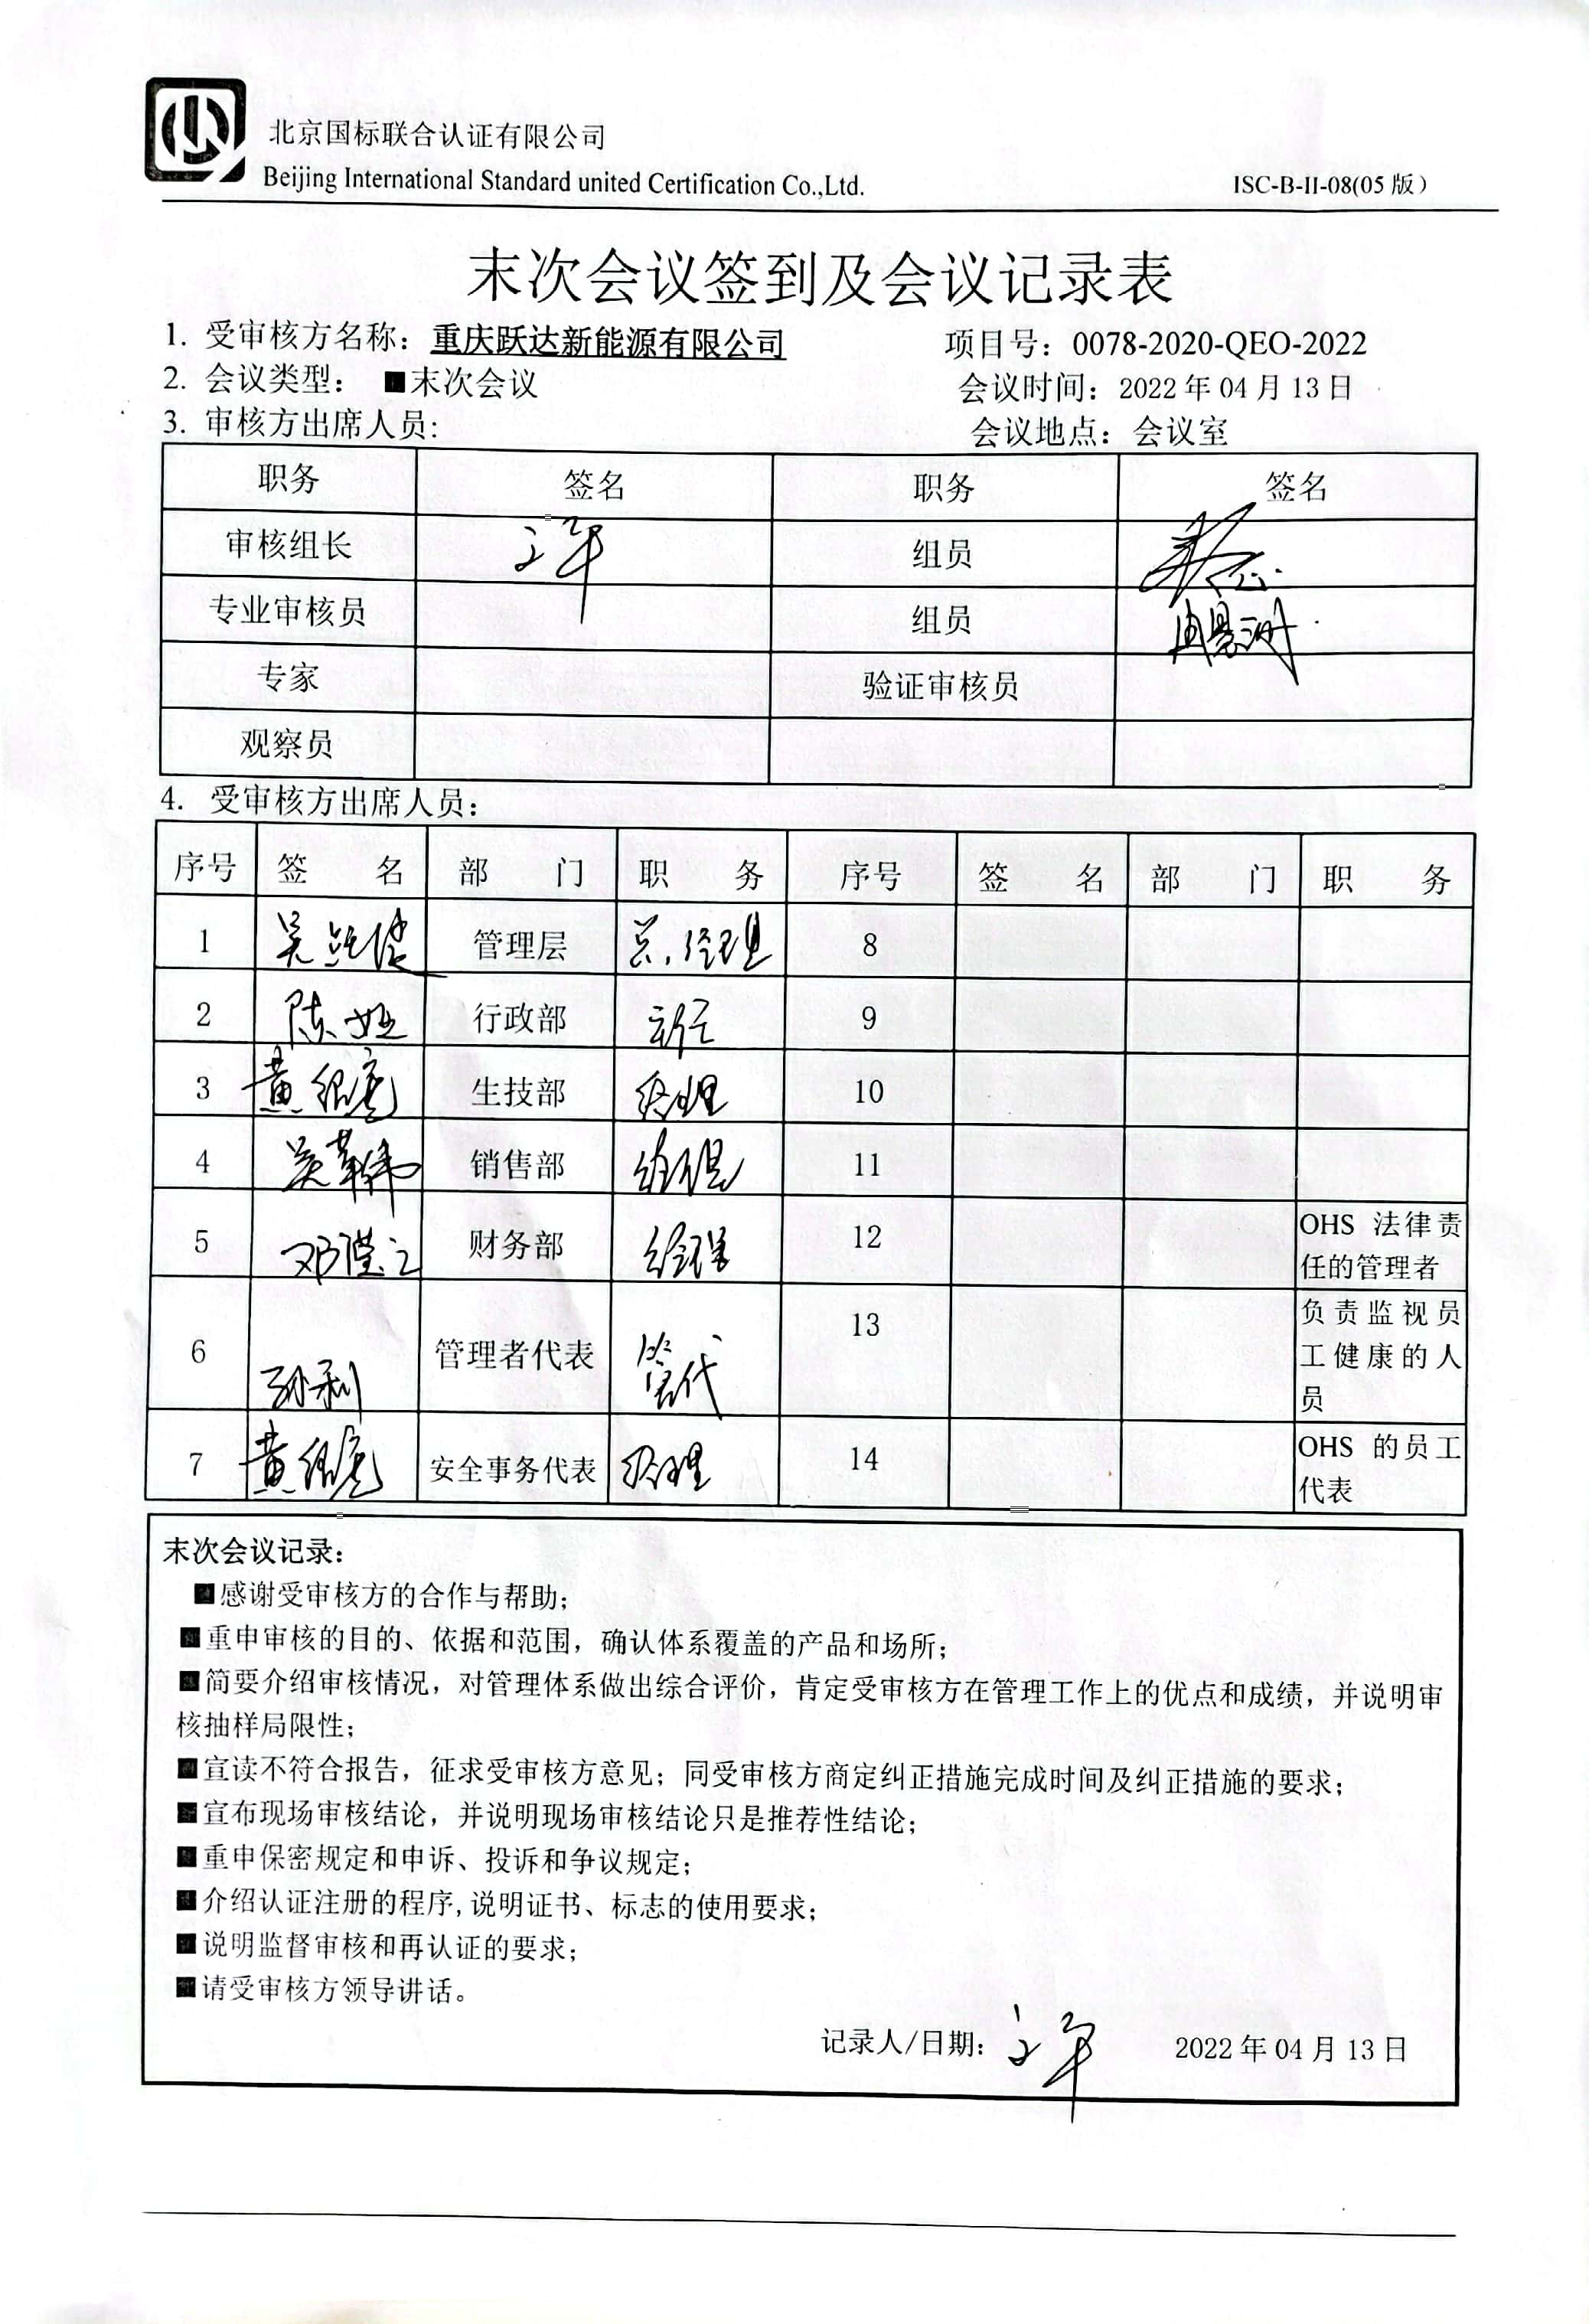 北京国标联合认证有限公司
Beijing International Standard united Certification Co.,Ltd.
ISC-B-II-08(05 版）
末次会议签到及会议记录表
1. 受审核方名称：重庆跃达新能源有限公司 项目号：0078-2020-QEO-2022
2. 会议类型： ■末次会议 会议时间：2022 年 04 月 13 日
3. 审核方出席人员: 会议地点：会议室
职务 签名 职务 签名
审核组长 文平 组员
专业审核员 组员
专家 验证审核员
观察员
4. 受审核方出席人员：
序号 签 名 部 门 职 务 序号 签 名 部 门 职 务
1 管理层 总经理 8
2 陈娅 行政部 主任 9
3 生技部 经理 10
4 销售部 经理 11
5 财务部 经理 12 OHS 法律责
任的管理者
6 孙利 管理者代表 管代 13 负责监视员
工健康的人
员
7 安全事务代表 经理 14 OHS 的员工
代表
末次会议记录：
■感谢受审核方的合作与帮助；
■重申审核的目的、依据和范围，确认体系覆盖的产品和场所；
■简要介绍审核情况，对管理体系做出综合评价，肯定受审核方在管理工作上的优点和成绩，并说明审
核抽样局限性；
■宣读不符合报告，征求受审核方意见；同受审核方商定纠正措施完成时间及纠正措施的要求；
■宣布现场审核结论，并说明现场审核结论只是推荐性结论；
■重申保密规定和申诉、投诉和争议规定；
■介绍认证注册的程序,说明证书、标志的使用要求；
■说明监督审核和再认证的要求；
■请受审核方领导讲话。
记录人/日期： 文平 2022 年 04 月 13 日